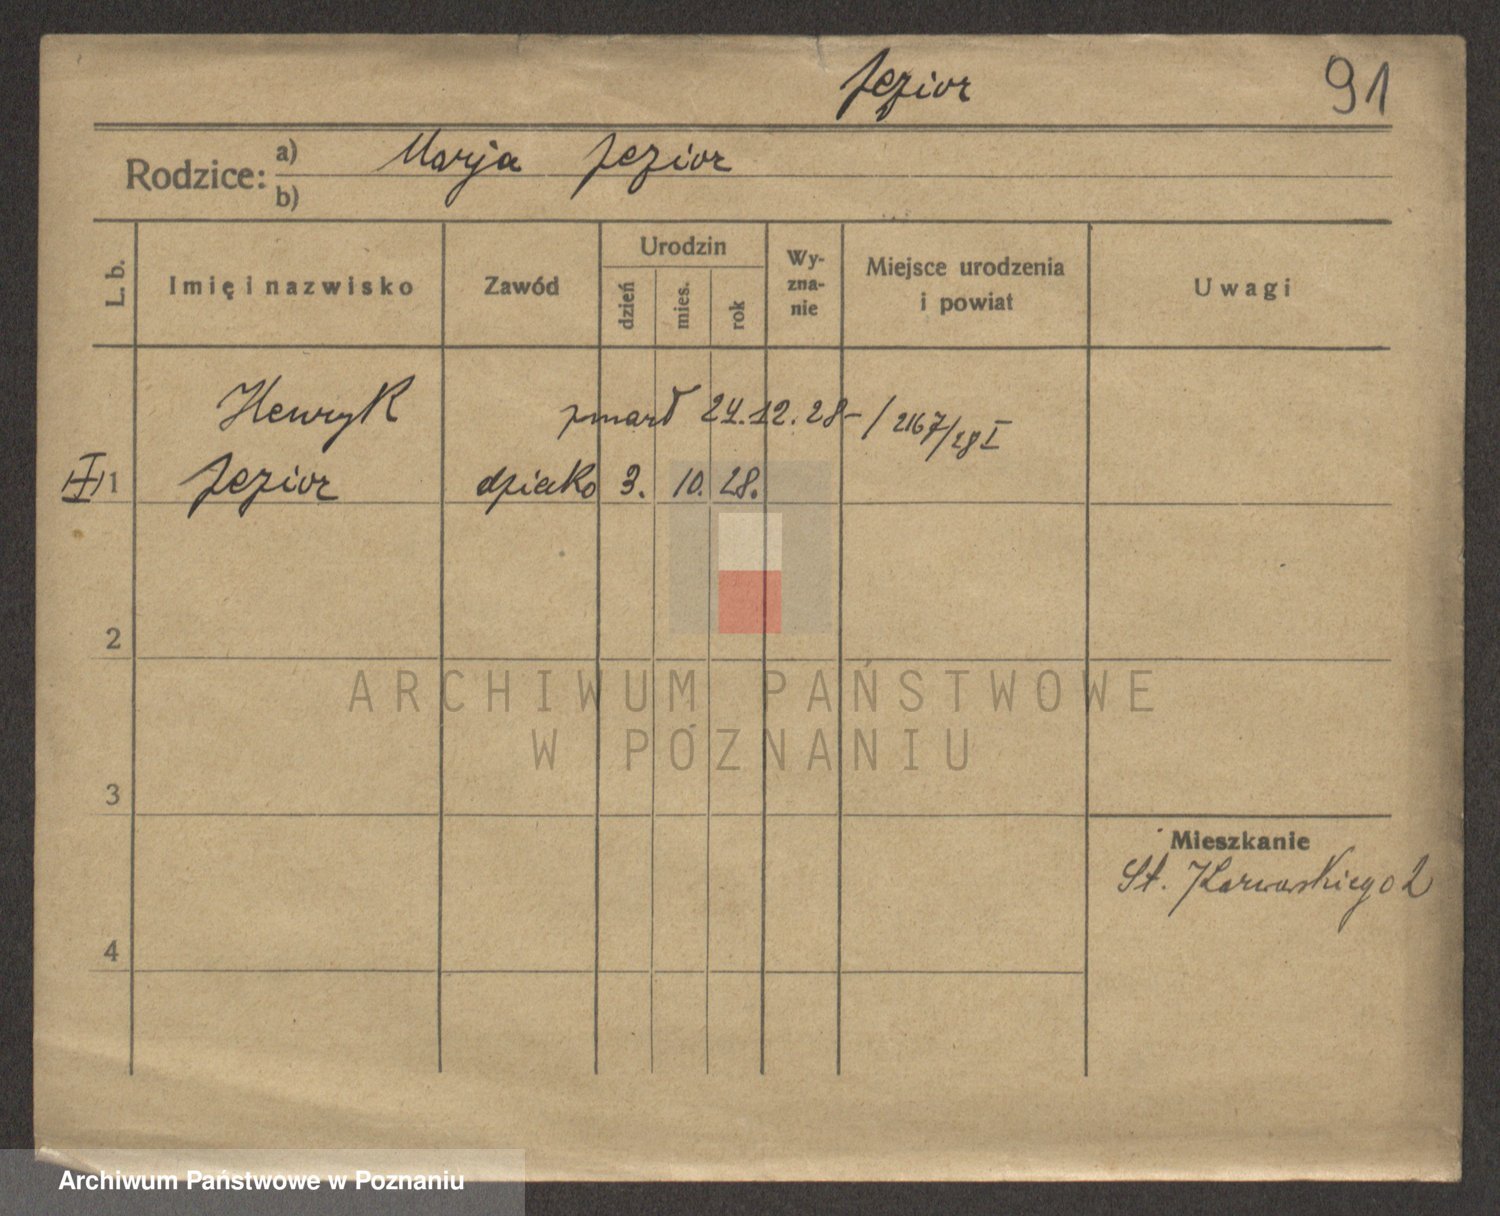 Jezior 91
Rodzice: a) Marja Jezior
b)
L. b. Imię i nazwisko Zawód Urodzin dzień mies. rok Wy-zna-nie Miejsce urodzenia i powiat Uwagi
Henryk zmarł 24.12.28-/2167/28 I
1 Jezior dziecko 3. 10. 28.
2
ARCHIWUM PAŃSTWOWE
W POZNANIU
3
Mieszkanie
St. Karwowskiego 2
4
Archiwum Państwowe w Poznaniu